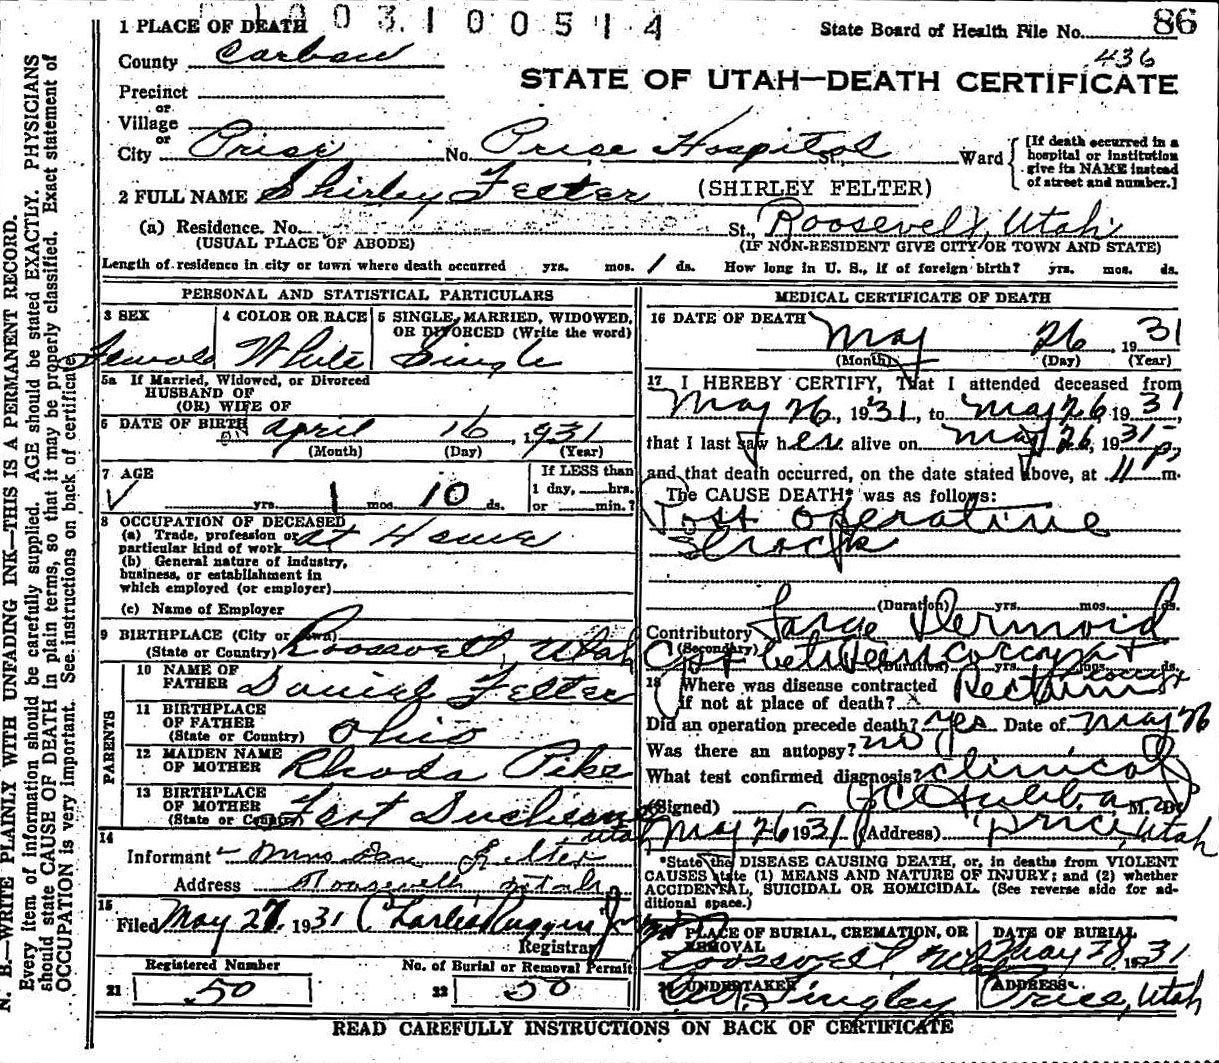 1003100514
1 PLACE OF DEATH
State Board of Health File No. 86
436
County Carbon
STATE OF UTAH—DEATH CERTIFICATE
Precinct
or
Village
or
City Price No. Price Hospital St., Ward
[If death occurred in a hospital or institution give its NAME instead of street and number.]
2 FULL NAME Shirley Felter (SHIRLEY FELTER)
(a) Residence. No. St., Roosevelt, Utah
(USUAL PLACE OF ABODE) (IF NON-RESIDENT GIVE CITY OR TOWN AND STATE)
Length of residence in city or town where death occurred yrs. mos. 1 ds. How long in U. S., if of foreign birth? yrs. mos. ds.
PERSONAL AND STATISTICAL PARTICULARS
3 SEX 4 COLOR OR RACE 5 SINGLE, MARRIED, WIDOWED, OR DIVORCED (Write the word)
Female White Single
5a If Married, Widowed, or Divorced
HUSBAND OF
(OR) WIFE OF
6 DATE OF BIRTH April 16, 1931
(Month) (Day) (Year)
7 AGE
If LESS than
1 day, hrs.
or min.?
yrs. 1 mos. 10 ds.
8 OCCUPATION OF DECEASED
(a) Trade, profession or
particular kind of work at Home
(b) General nature of industry,
business, or establishment in
which employed (or employer)
(c) Name of Employer
9 BIRTHPLACE (City or town)
(State or Country) Roosevelt, Utah
PARENTS
10 NAME OF
FATHER Daniel Felter
11 BIRTHPLACE
OF FATHER
(State or Country) Ohio
12 MAIDEN NAME
OF MOTHER Rhoda Pike
13 BIRTHPLACE
OF MOTHER
(State or Country) Fort Duchesne
Utah
14
Informant Mrs Dan Felter
Address Roosevelt Utah
15
Filed May 27, 1931
Registrar
Registered Number No. of Burial or Removal Permit
21 50 22 50
MEDICAL CERTIFICATE OF DEATH
16 DATE OF DEATH
May 26, 1931
(Month) (Day) (Year)
17 I HEREBY CERTIFY, That I attended deceased from
May 26, 1931, to May 26, 1931,
that I last saw her alive on May 26, 1931
and that death occurred, on the date stated above, at 11 P. m.
The CAUSE DEATH* was as follows:
Post operative
Shock
(Duration) yrs. mos. ds.
Contributory Large Dermoid
(Secondary) Cyst between coccyx &
(Duration) yrs. mos. ds.
18 Where was disease contracted Rectum
if not at place of death?
Did an operation precede death? yes Date of May 26
Was there an autopsy? no
What test confirmed diagnosis? clinical
(Signed) M. D.
May 26 1931 (Address) Price, Utah
*State the DISEASE CAUSING DEATH, or, in deaths from VIOLENT
CAUSES state (1) MEANS AND NATURE OF INJURY; and (2) whether
ACCIDENTAL, SUICIDAL OR HOMICIDAL. (See reverse side for ad-
ditional space.)
PLACE OF BURIAL, CREMATION, OR REMOVAL DATE OF BURIAL
Roosevelt, Utah May 28, 1931
UNDERTAKER ADDRESS
Price, Utah
READ CAREFULLY INSTRUCTIONS ON BACK OF CERTIFICATE
N. B.—WRITE PLAINLY WITH UNFADING INK—THIS IS A PERMANENT RECORD.
Every item of information should be carefully supplied. AGE should be stated EXACTLY. PHYSICIANS
should state CAUSE OF DEATH in plain terms, so that it may be properly classified. Exact statement of
OCCUPATION is very important. See instructions on back of certificate.